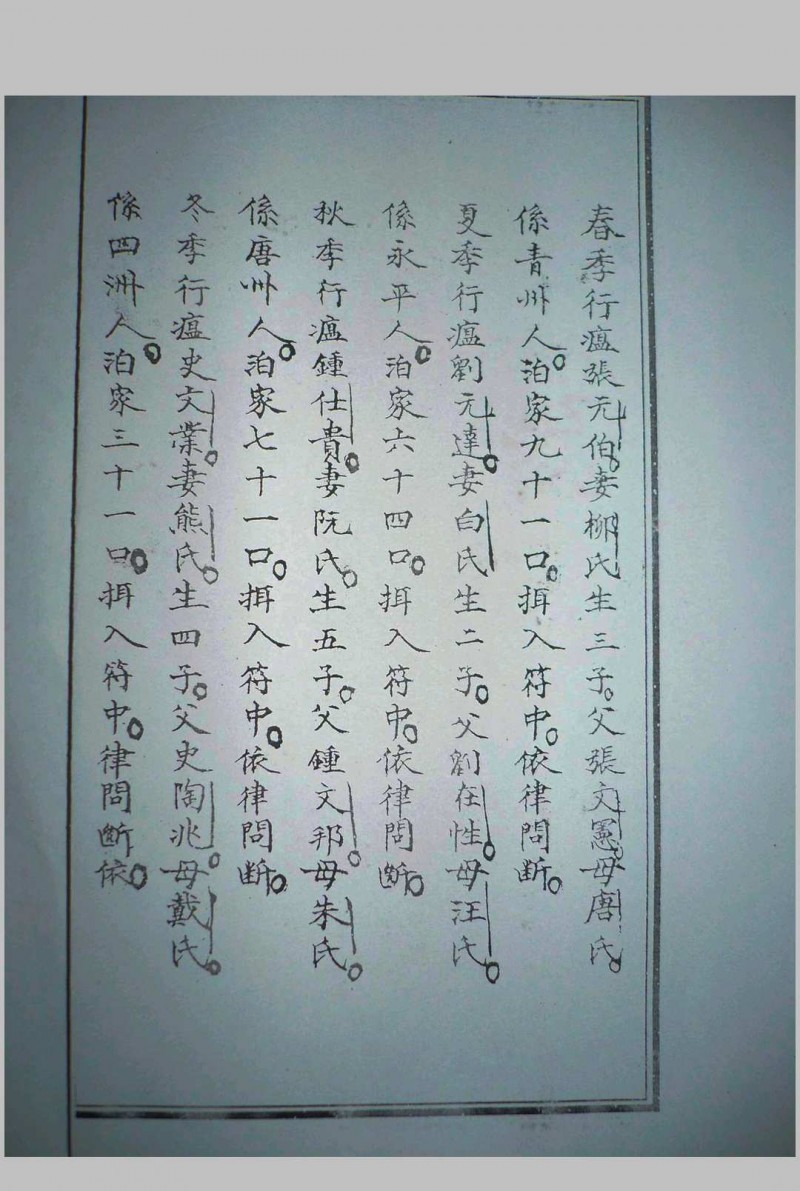 春季行瘟張元伯。妻柳氏生三子。父張文憲。母唐氏。
係青州人。泊家九十一口。揖入符中。依律問斷。
夏季行瘟劉元達。妻白氏生二子。父劉在性。母汪氏。
係永平人。泊家六十四口。揖入符中。依律問斷。
秋季行瘟鍾仕貴。妻阮氏。生五子。父鍾文邦。母朱氏。
係唐州人。泊家七十一口。揖入符中。依律問斷。
冬季行瘟史文業。妻熊氏。生四子。父史陶兆。母戴氏。
係四洲人。泊家三十一口。揖入符中。律問斷依。